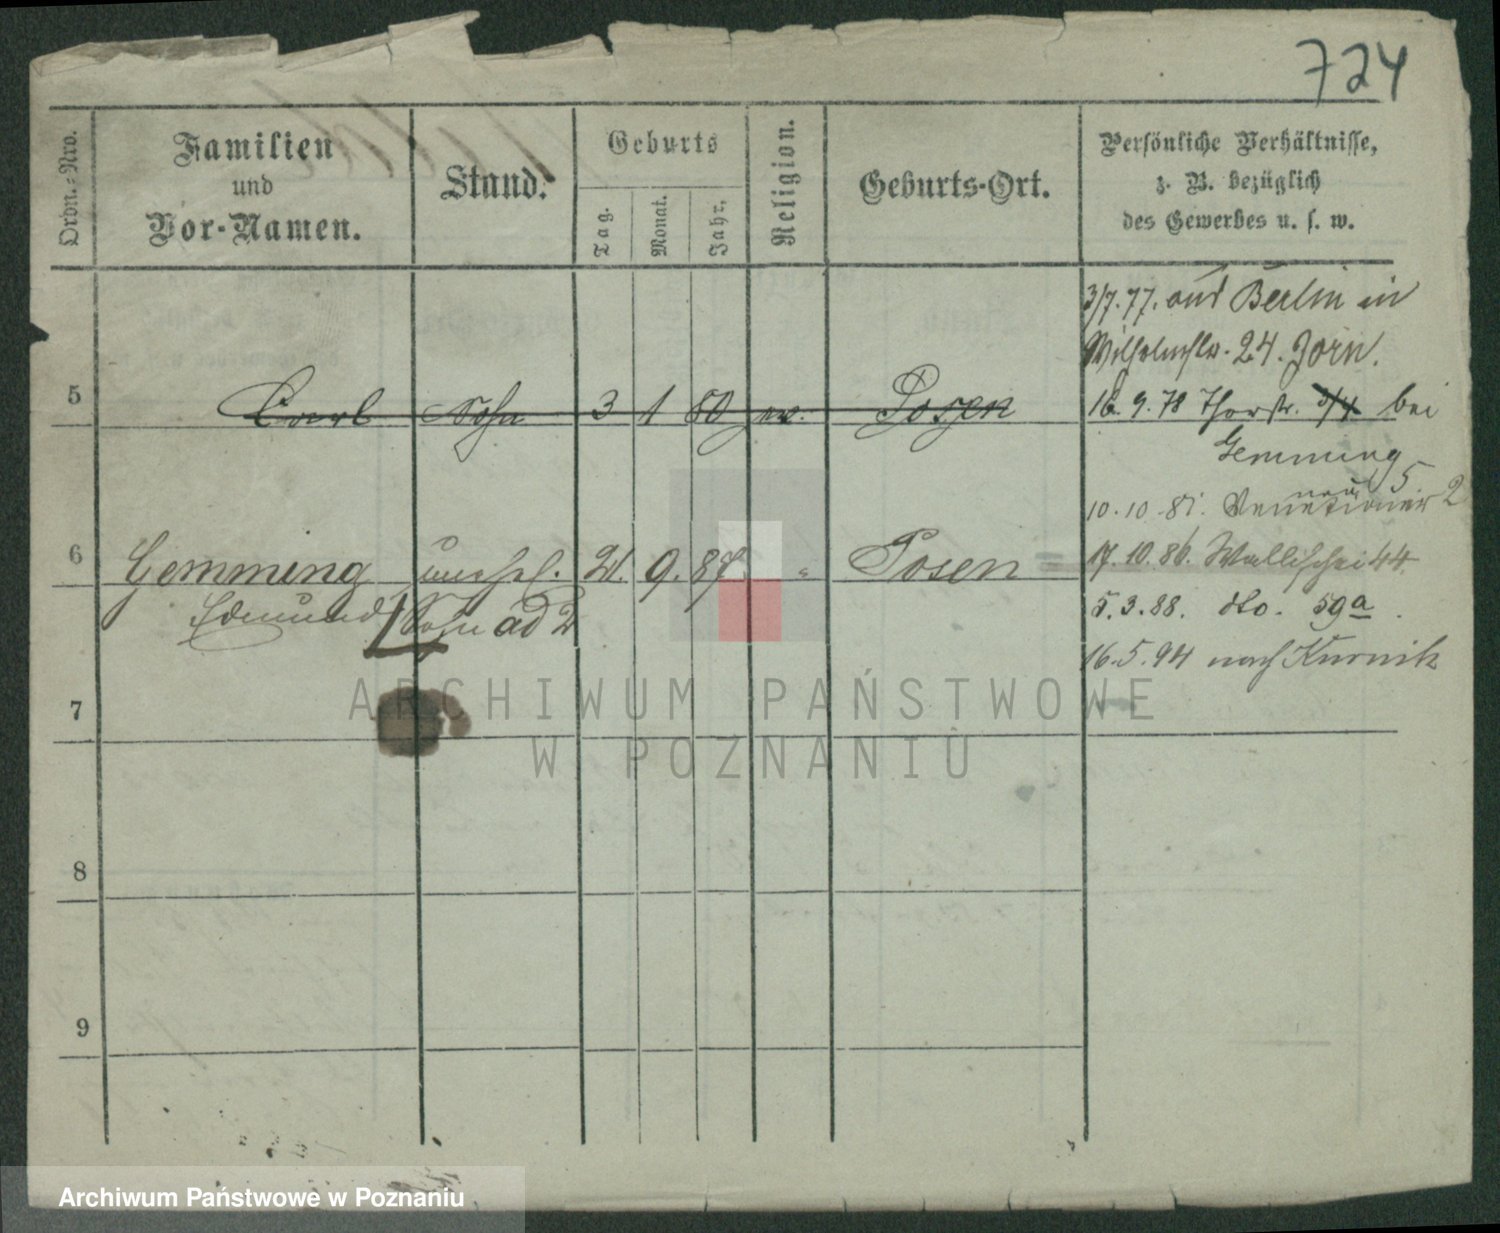 724
Ordn.-Nro.
Familien
und
Vor-Namen.
Stand.
Geburts
Tag.
Monat.
Jahr.
Religion.
Geburts-Ort.
Persönliche Verhältnisse,
z. B. bezüglich
des Gewerbes u. s. w.
3/7.77. aus Berlin in
24.
5 Carl Sohn 3 1 80 ev. Posen
16.9.78 Thorstr. 3/4 bei
Gemming
10.10.81. Venetianer 2
neu 5
6 Gemming unehel. 21. 9. 87 " Posen
17.10.86. Wallischei 44.
Edmund Sohn ad 2
5.3.88. dto. 59a.
16.5.94 nach Kurnik
7
8
9
ARCHIWUM PAŃSTWOWE
W POZNANIU
Archiwum Państwowe w Poznaniu